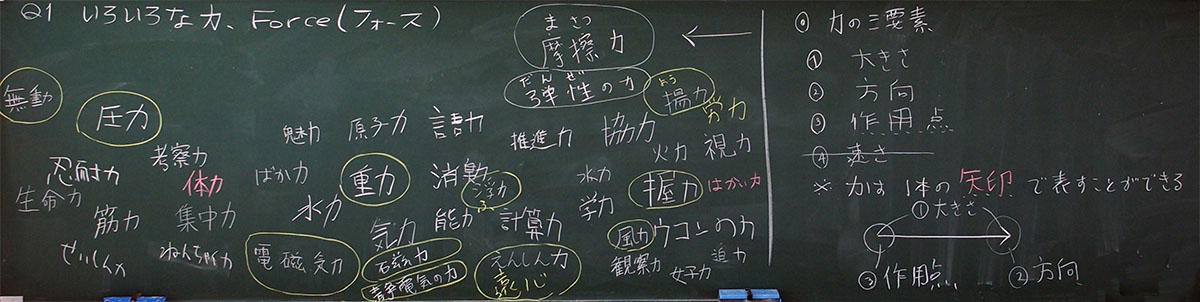 Q1 いろいろな力、Force(フォース)
まさつ
摩擦力
だんせい
弾性の力
よう
揚力
労力
無動
圧力
魅力
原子力
語力
推進力
協力
火力
視力
忍耐力
考察力
体力
ばか力
重力
消動
浮力
ふ
水力
握力
はかい力
生命力
筋力
集中力
水力
気力
能力
計算力
学力
風力
ウコンの力
せいしん力
ねんちゃく力
電磁気力
石磁力
静電気の力
えんしん力
遠心
観察力
女子力
迫力
◎ 力の三要素
① 大きさ
② 方向
③ 作用点
④ 速さ
※ 力は 1本の 矢印 で表すことができる
①大きさ
③作用点
②方向